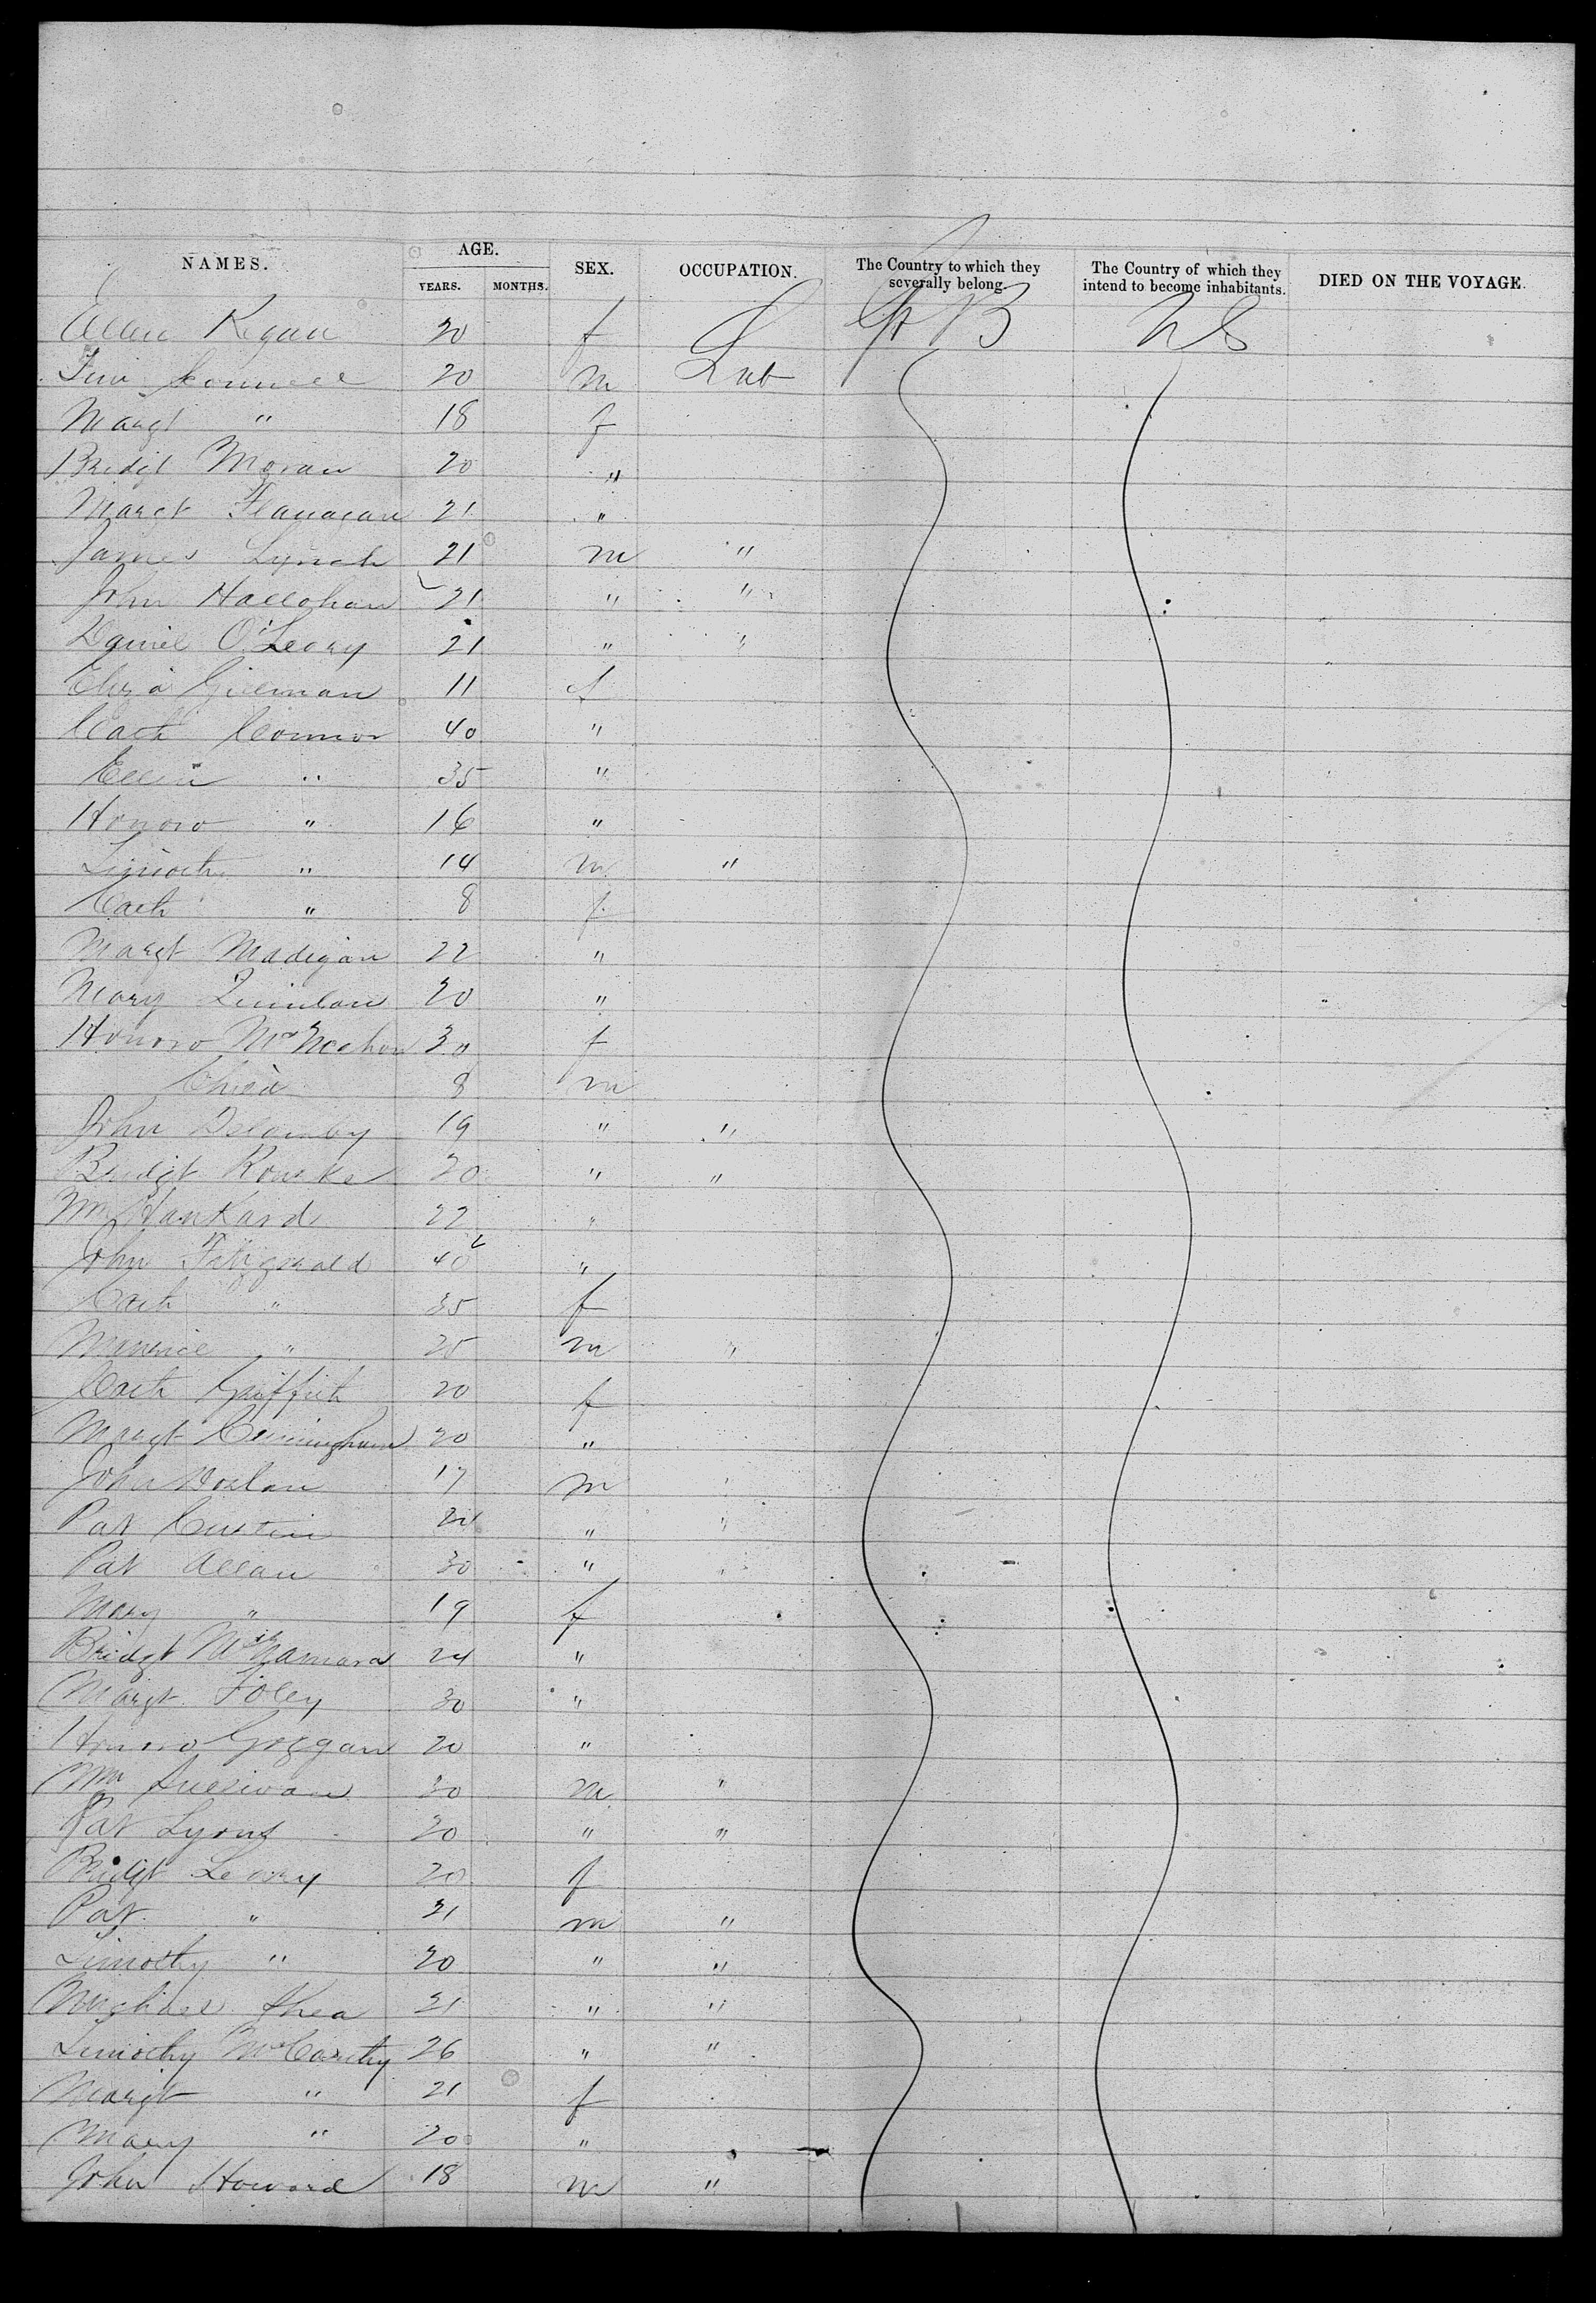 NAMES. AGE. SEX. OCCUPATION. The Country to which they severally belong. The Country of which they intend to become inhabitants. DIED ON THE VOYAGE.
YEARS. MONTHS.
Ellen Regan 20 f Gt B U S
Tim Connell 20 m Lab
Margt " 18 f
Bridgt Moran 20 "
Margt Flanagan 21 "
James Lynch 21 m "
John Hallohan 21 " "
Daniel O'Leary 21 " "
Eliza Gillman 11 f
Cath Connor 40 "
Ellen " 35 "
Honoro " 16 "
Timoth " 14 m "
Cath " 8 f
Margt Madigan 22 "
Mary Quinlan 20 "
Honoro McMechon 30 f
Child 8 m
John 19 " "
Bridgt Rourke 20 " "
Wm Hankard 22 "
John Fitzgerald 40 "
Cath " 35 f
Maurice " 25 m "
Cath Griffith 20 f
Margt Cunningham 20 "
John 17 m "
Pat Curtin 24 " "
Pat Allan 30 " "
Mary " 19 f
Bridgt McNamara 24 "
Margt Foley 30 "
Honoro Goggan 20 "
Wm Sullivan 30 m "
Pat Lyons 20 " "
Bridgt Leary 20 f
Pat " 21 m "
Timothy " 20 " "
Michael Shea 21 " "
Timothy McCarthy 26 " "
Margt " 21 f
Mary " 20 "
John Howard 18 m "